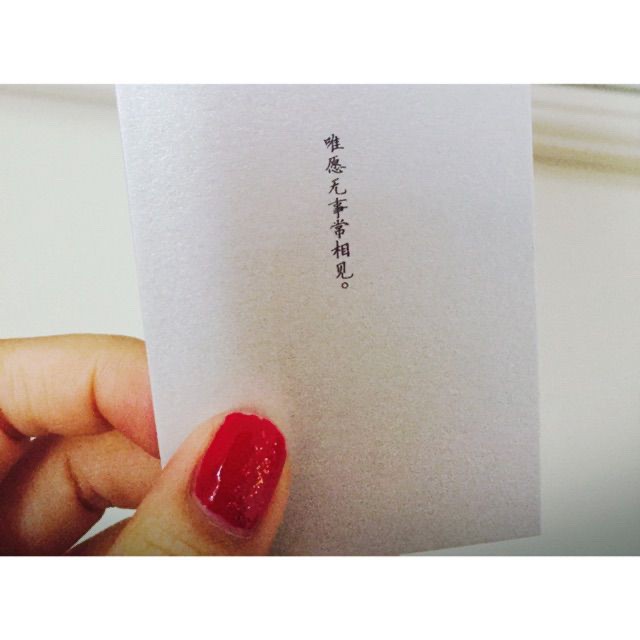 唯愿无事常相见。